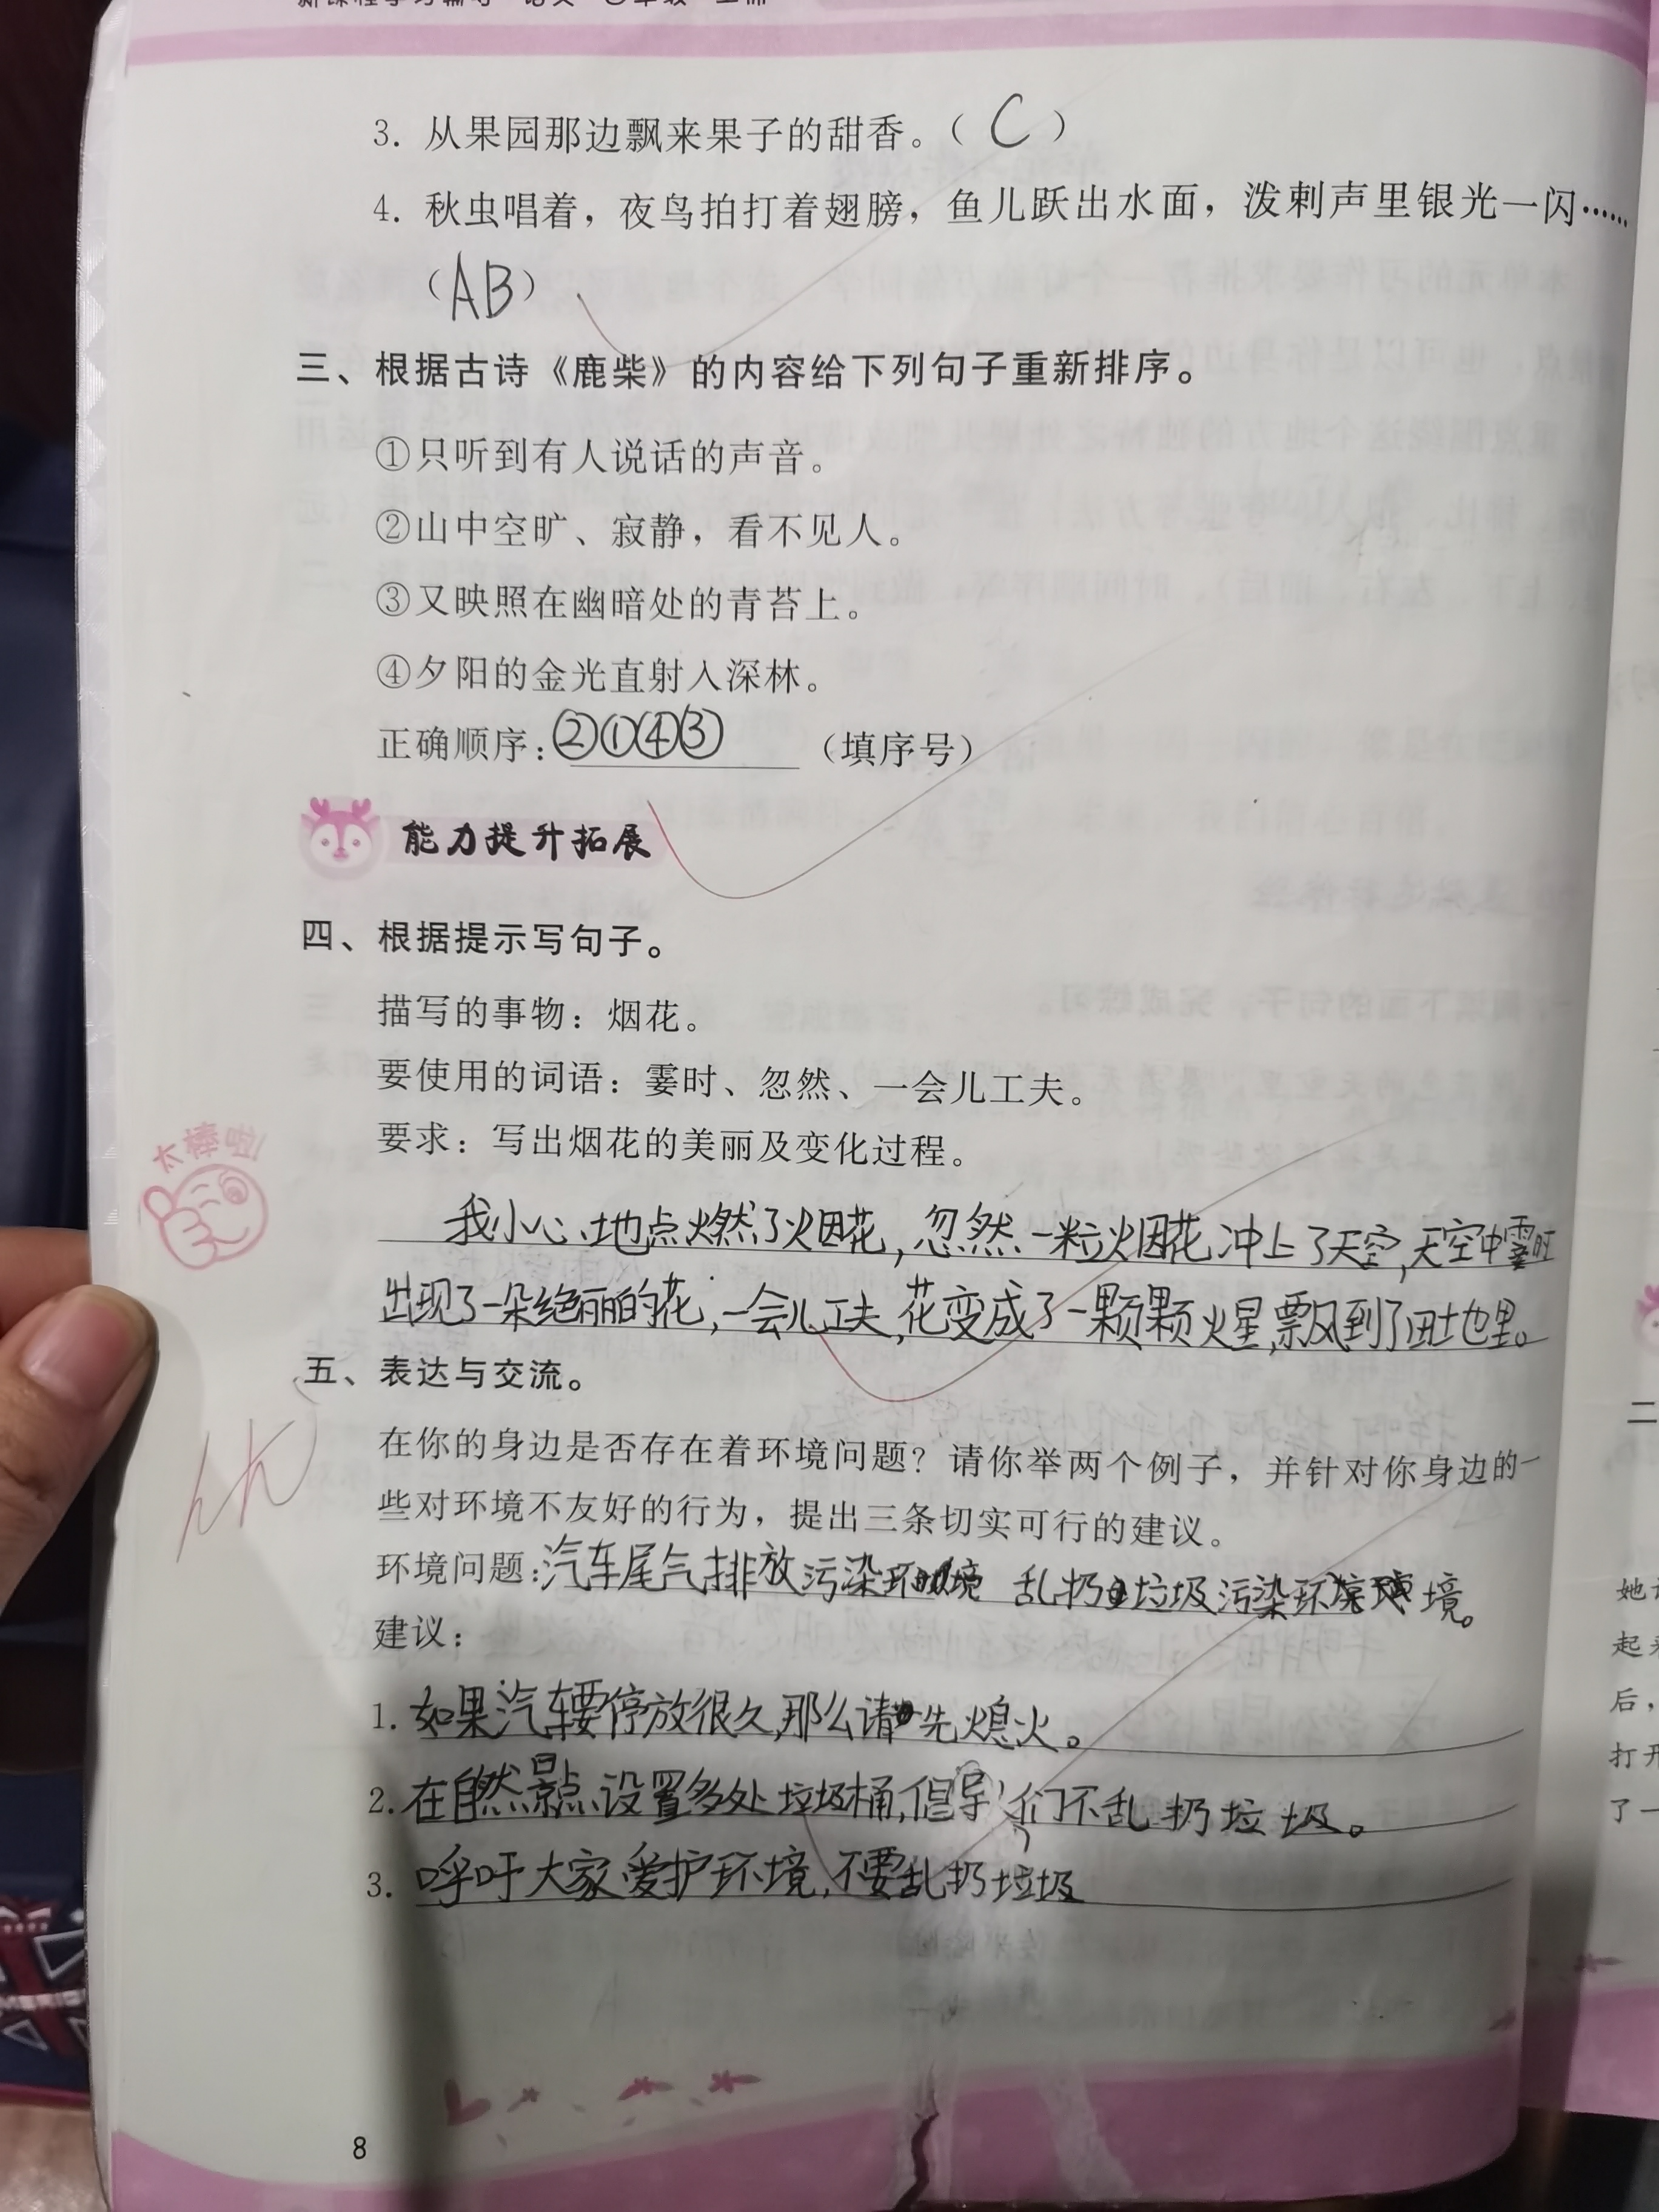 3. 从果园那边飘来果子的甜香。（ C ）
4. 秋虫唱着，夜鸟拍打着翅膀，鱼儿跃出水面，泼刺声里银光一闪……
（AB）
三、根据古诗《鹿柴》的内容给下列句子重新排序。
①只听到有人说话的声音。
②山中空旷、寂静，看不见人。
③又映照在幽暗处的青苔上。
④夕阳的金光直射入深林。
正确顺序：②①④③ （填序号）
能力提升拓展
四、根据提示写句子。
描写的事物：烟花。
要使用的词语：霎时、忽然、一会儿工夫。
要求：写出烟花的美丽及变化过程。
太棒啦
我小心地点燃了烟花，忽然一粒火烟花冲上了天空，天空中霎时
出现了一朵绝丽的花，一会儿工夫，花变成了一颗颗火星，飘到了田地里。
五、表达与交流。
在你的身边是否存在着环境问题？请你举两个例子，并针对你身边的一
些对环境不友好的行为，提出三条切实可行的建议。
环境问题：汽车尾气排放污染环境 乱扔垃圾污染环境。
建议：
1. 如果汽车要停放很久，那么请先熄火。
2. 在自然景点设置多处垃圾桶，倡导人们不乱扔垃圾。
3. 呼吁大家爱护环境，不要乱扔垃圾
8
二
她
起来
后，
打开
了一